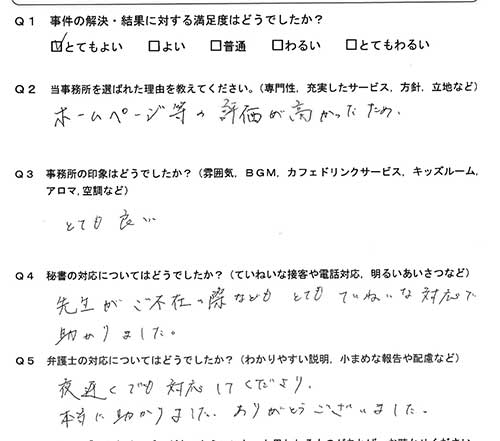 Q1 事件の解決・結果に対する満足度はどうでしたか？
☑とてもよい □よい □普通 □わるい □とてもわるい
Q2 当事務所を選ばれた理由を教えてください。（専門性，充実したサービス，方針，立地など）
ホームページ等の評価が高かったため．
Q3 事務所の印象はどうでしたか？（雰囲気，BGM，カフェドリンクサービス，キッズルーム，
アロマ，空調など）
とても良い
Q4 秘書の対応についてはどうでしたか？（ていねいな接客や電話対応，明るいあいさつなど）
先生がご不在の際などもとてもていねいな対応で
助かりました。
Q5 弁護士の対応についてはどうでしたか？（わかりやすい説明，小まめな報告や配慮など）
夜遅くでも対応してくださり，
本当に助かりました．ありがとうございました．